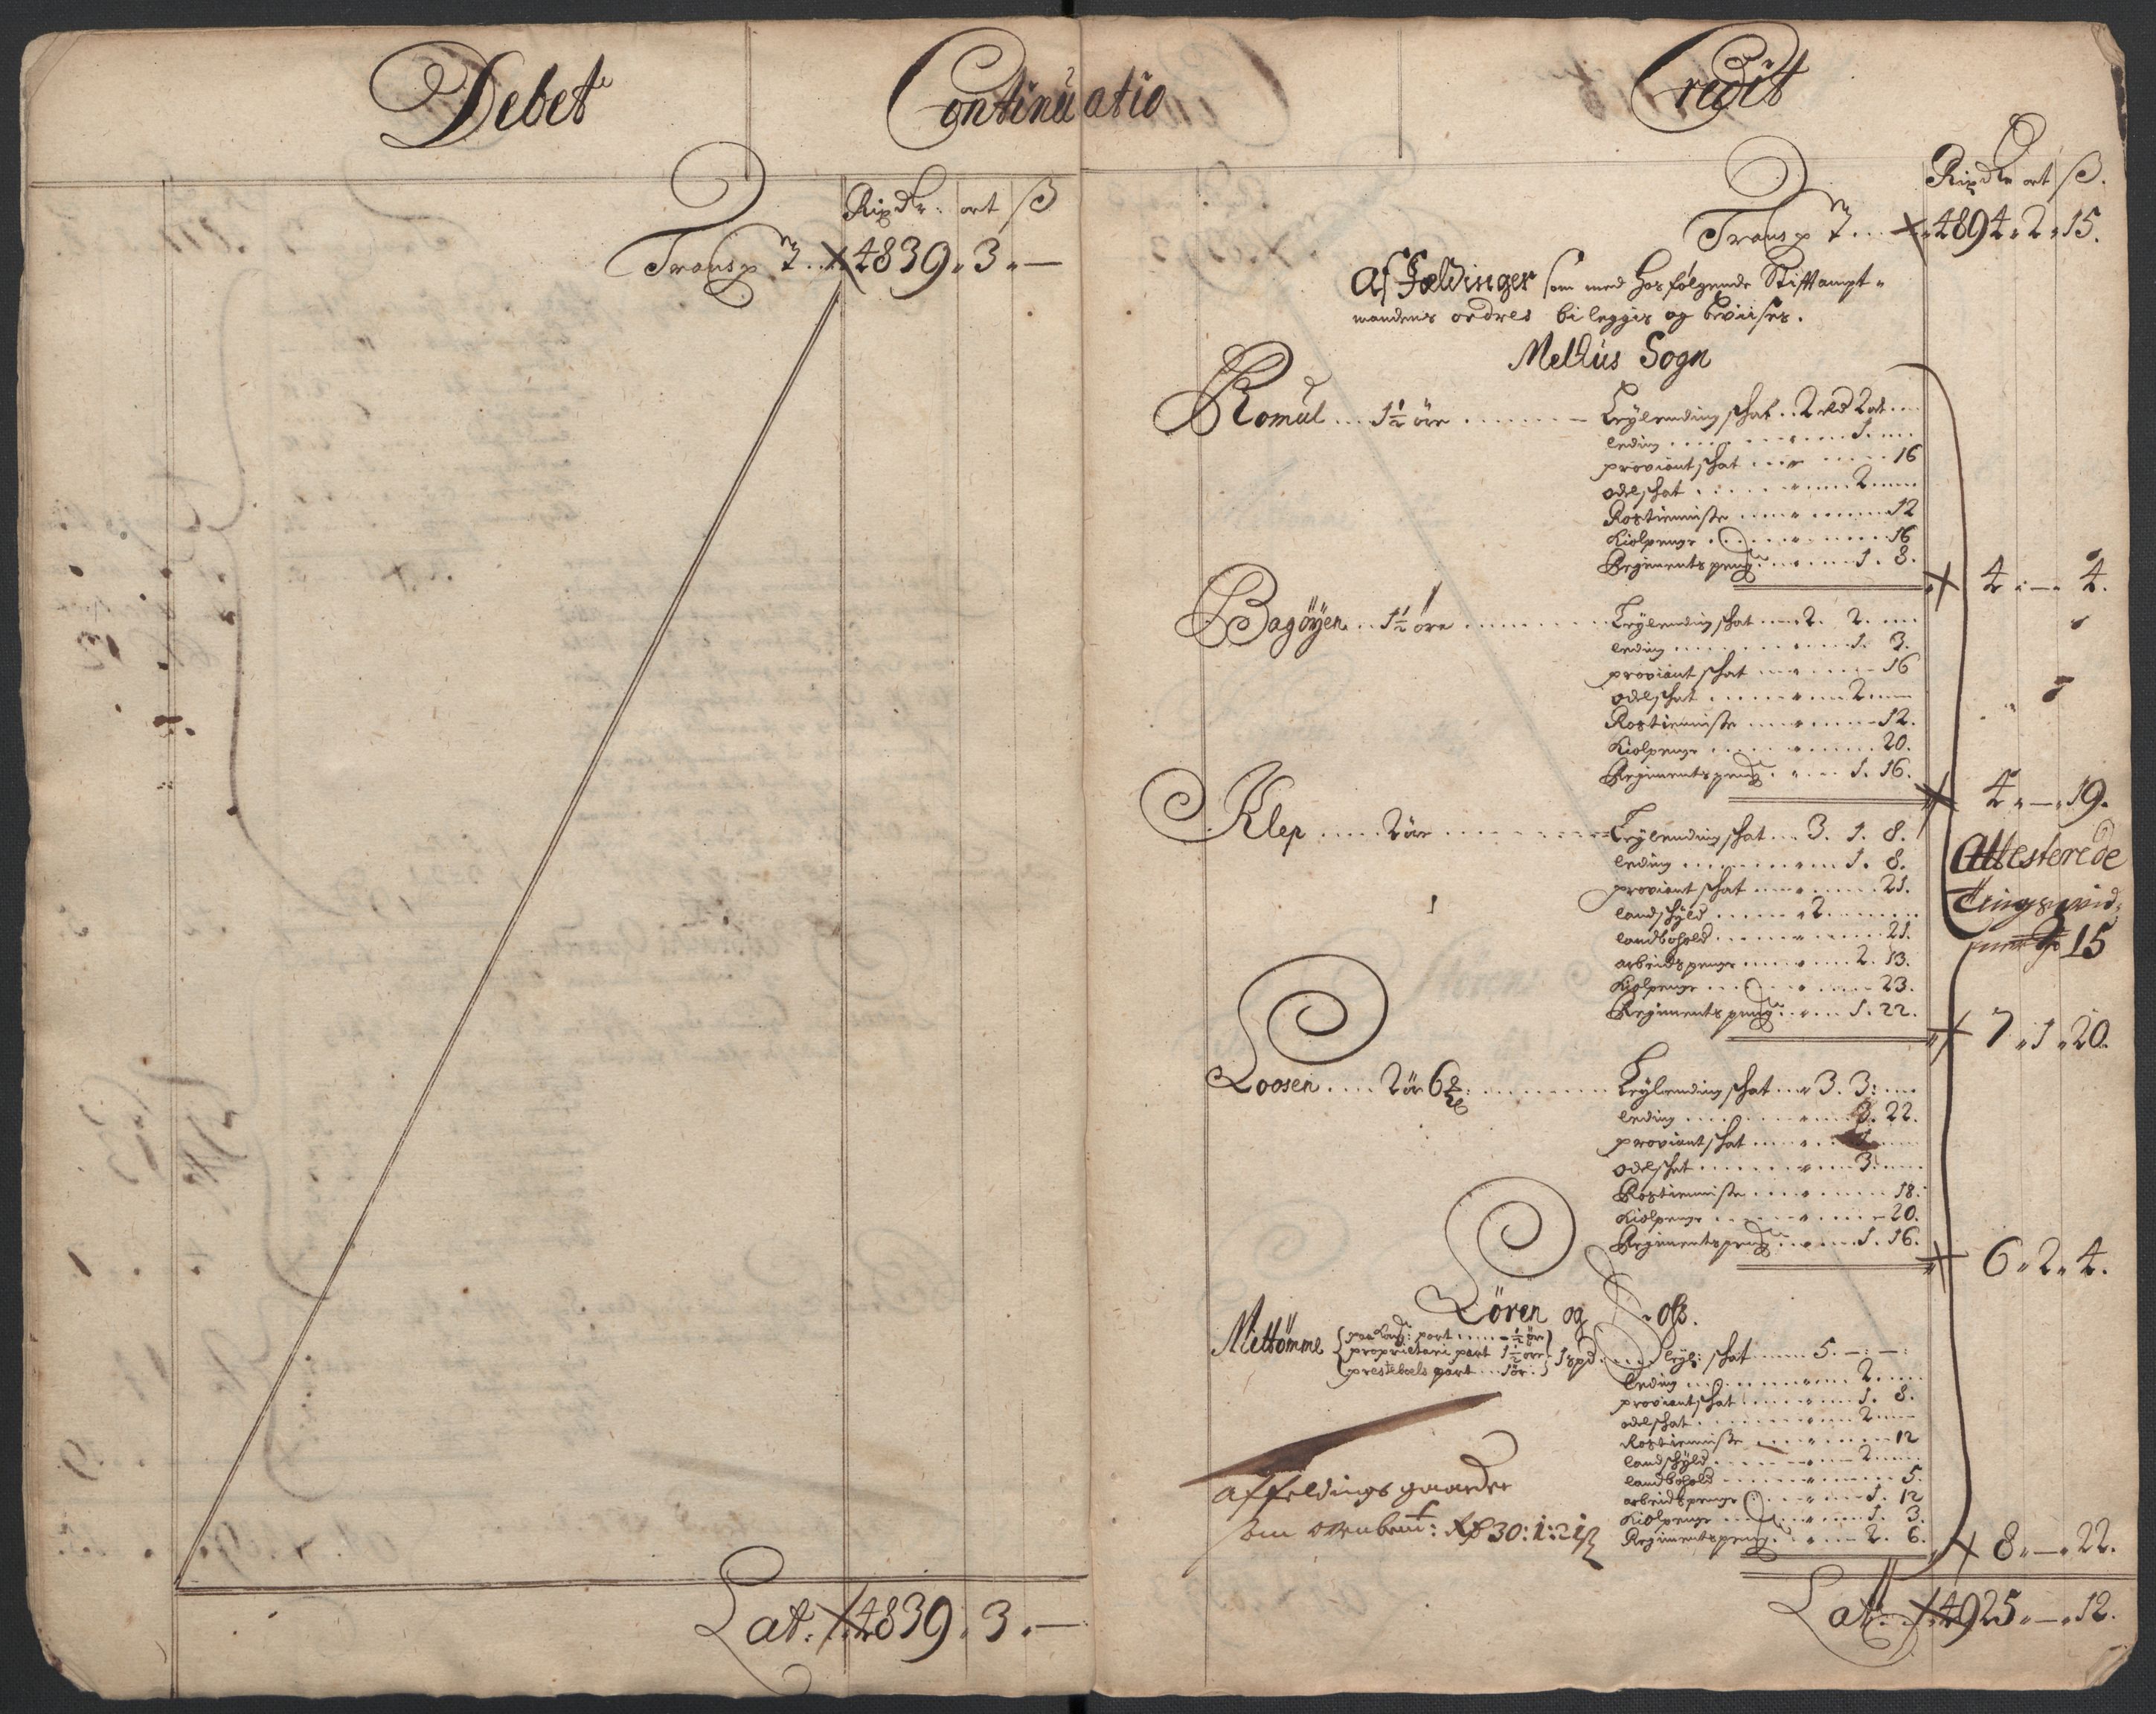 Debet
Continuatio
Rixdr: ort ß
Transp 4839. 3. —
Lat: 4839. 3. —
Credit
Rixdr ort ß.
Transp 4894. 2. 15.
Af Fældinger som med hosfølgende Stiftampt-
mandens ordres bileggis og beviises.
Melhus Sogn
Romul .... 1½ öre ....... Leylending schat .. 2 rd 2 ort ....
leding ....... 1. ...
proviant schat ....... 16
odelschat ....... 2 ....
Rostienniste ....... 12
Kiolpenge ....... 16
Regimentspeng ....... 1. 8.
4. — 4.
Bagøyen .. 1½ öre ....... Leylending schat .... 2. 2. ....
leding ....... 1. 3.
proviant schat ....... 16
odelschat ....... 2 ....
Rostienniste ....... 12.
Kiolpenge ....... 20.
Regimentspeng ....... 1. 16.
4. — 19.
Klep ..... 2 öre ....... Leylending schat .... 3. 1. 8.
leding ....... 1. 8.
proviant schat ....... 21.
landschyld ....... 2 .......
landbohold ....... 21.
arbeidspenge ....... 2. 13.
Kiolpenge ....... 23.
Regimentspeng ....... 1. 22.
7. 1. 20.
Attesterede
tingswid:
15
Loosen .... 2 ör 6 ....... Leylending schat .... 3. 3: ....
leding ....... 22.
proviant schat .......
odelschat ....... 3: ....
Rostienniste ....... 18.
Kiolpenge ....... 20.
Regimentspeng ....... 1. 16.
6. 2. 4.
Lören og
Mittömme
part ..... ½ öre
proprietari part 1½ öre
prestebols part ... 1 ör.
1 spd. .... leyl: schat ...... 5. —: —:
leding ....... 2. ....
proviantschat ....... 1. 8.
odelschat ....... 2 ....
Rostienniste ....... 12
landschyld ....... 2 ....
landbohold ....... 5.
arbeidspenge ....... 1. 12
Kiolpenge ....... 1. 3.
Regimentspeng. ....... 2. 6.
8. — 22.
affeldings gaarder
som ovenbemt: Rd 30: 1: 21 ß
Lat: 4925. — 12.